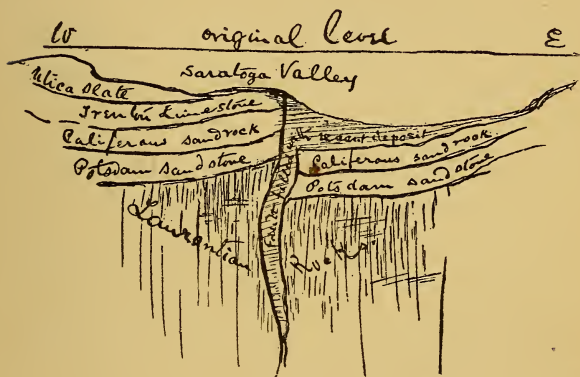 W original level E
Saratoga Valley
Utica Slate
Trenton Limestone
Califerous sandrock
Potsdam sandstone
recent deposit
Califerous sandrock
Potsdam sandstone
Laurentian Rocks